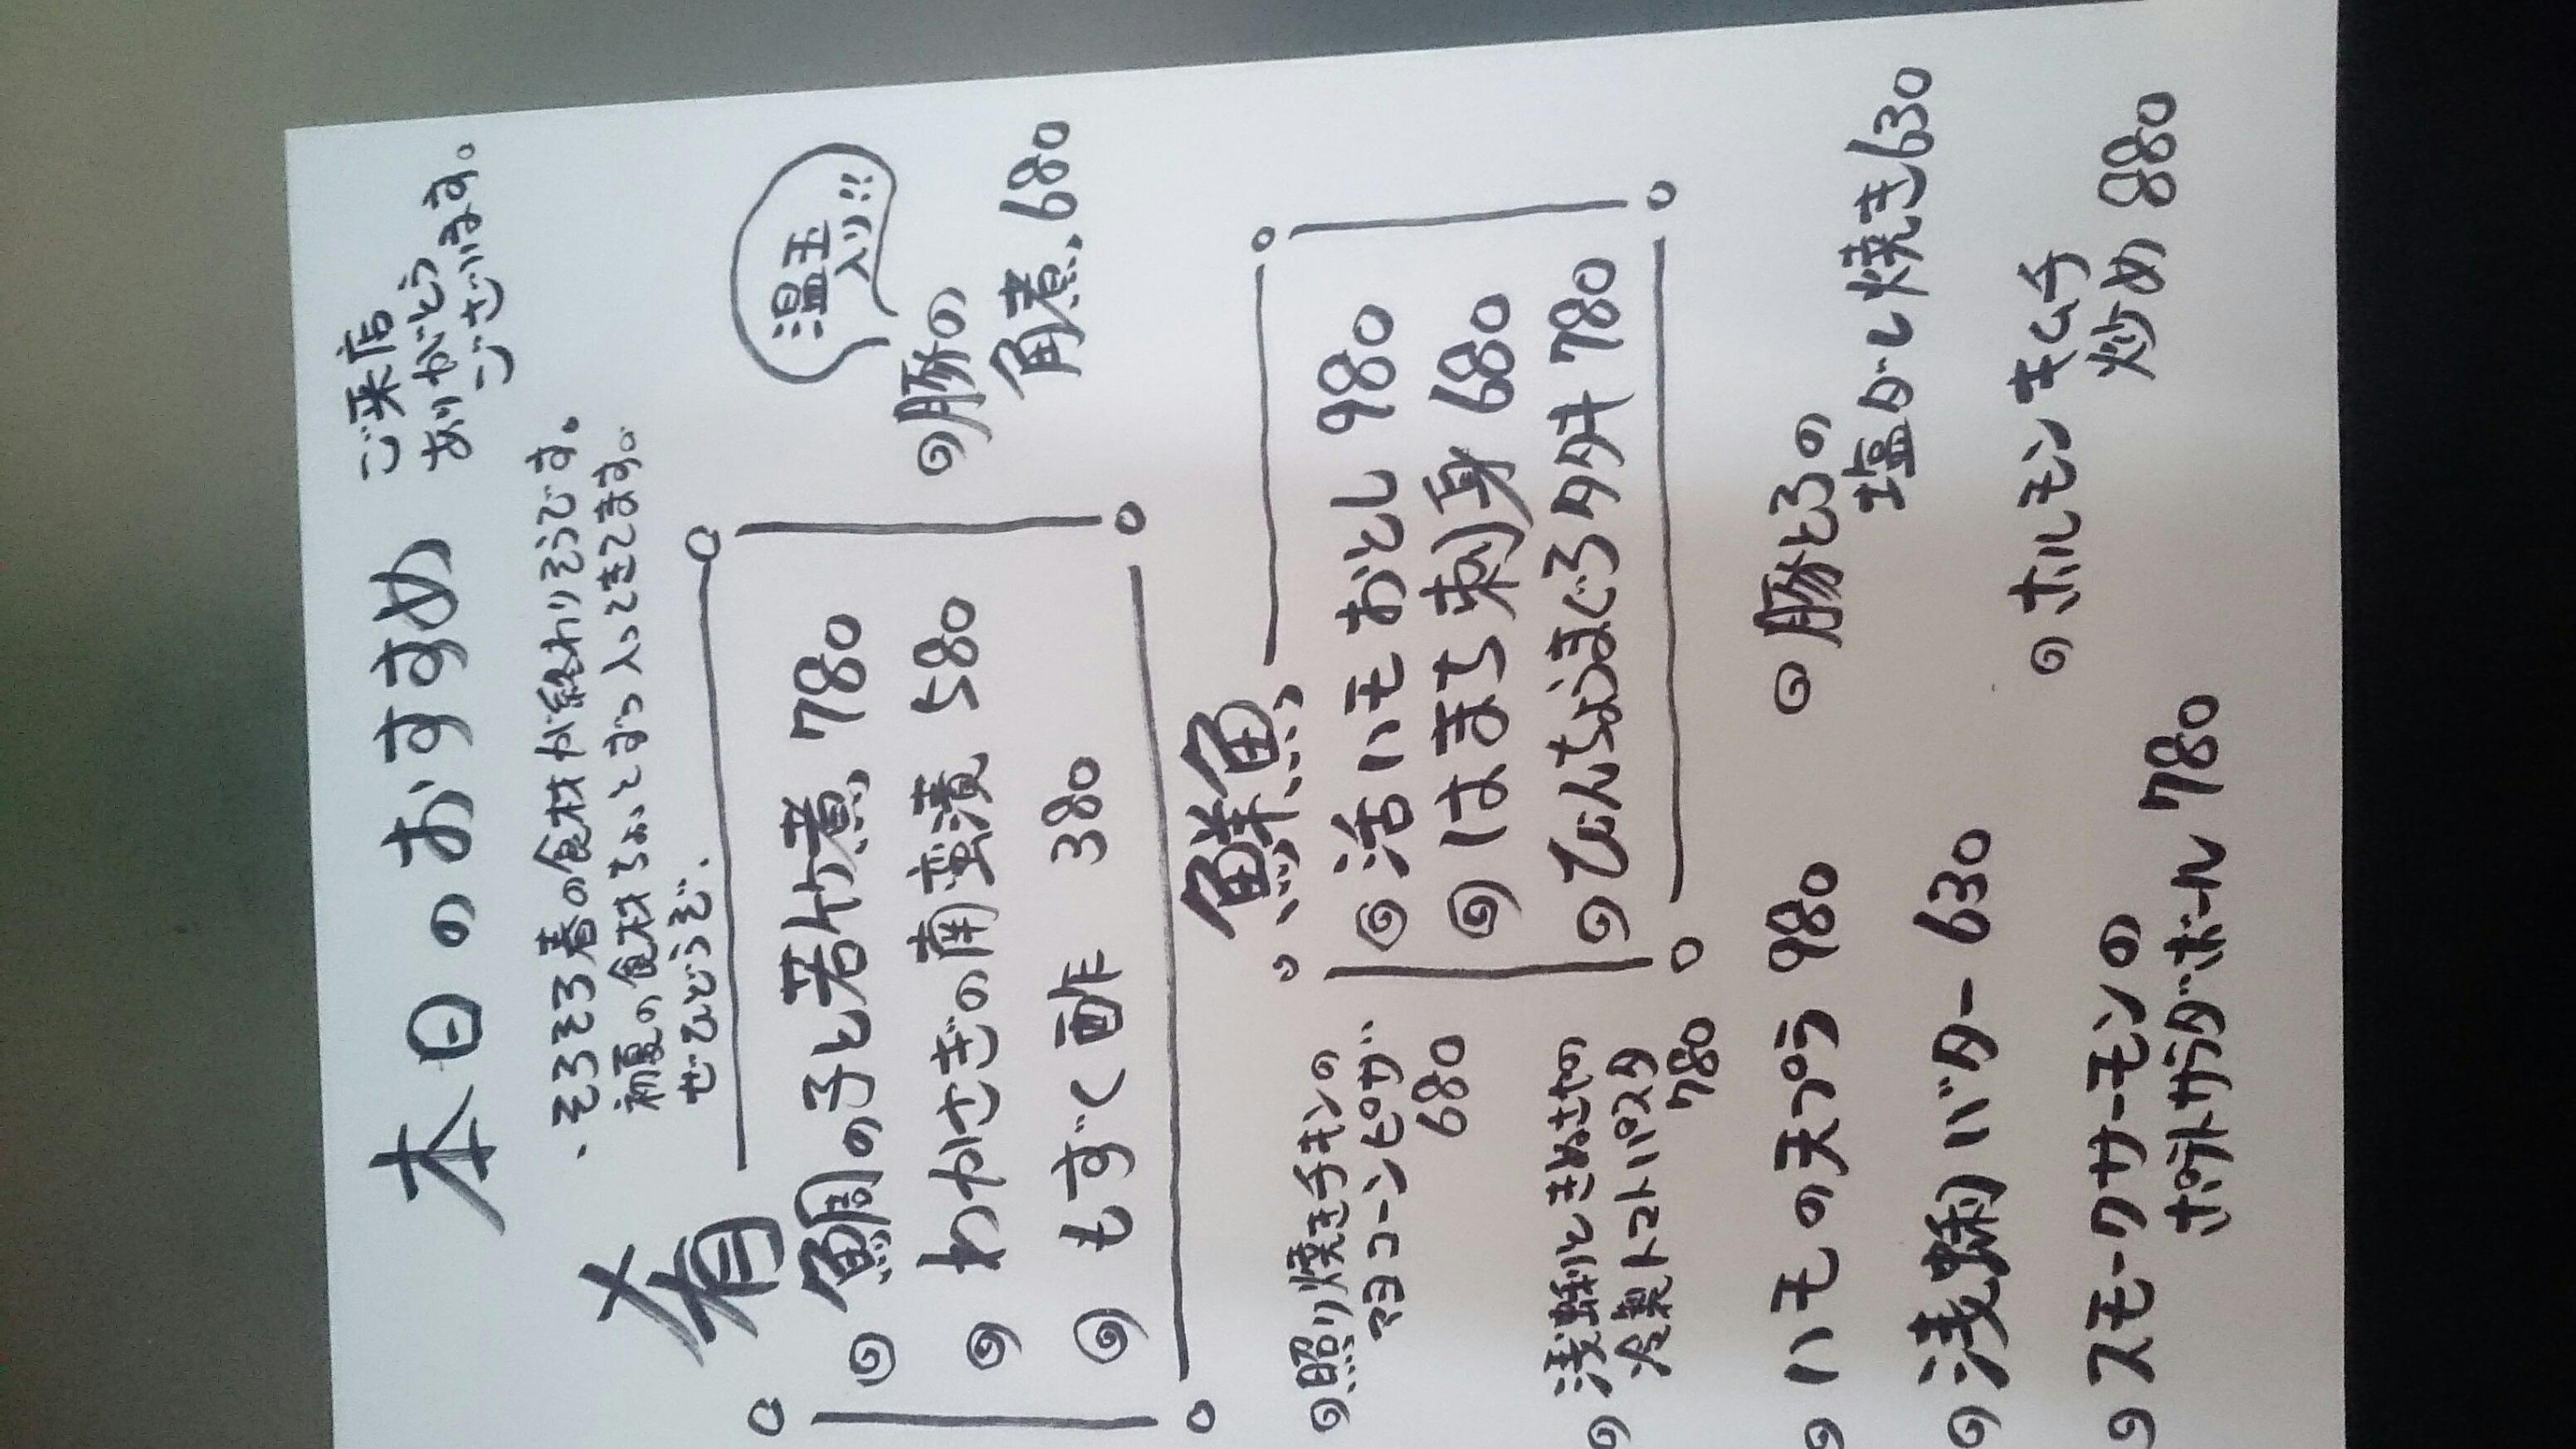 本日のおすすめ
ご来店
ありがとう
ございます。
・そろそろ春の食材が終わりそうです。
初夏の食材ちょっとずつ入ってきてます。
ぜひどうぞ.
肴
鯛の子と若竹煮 780
わかさぎの南蛮漬 580
もずく酢 380
温玉
入り!!
豚の
角煮 680
鮮魚
活ハモおとし 980
はまち刺身 680
びんちょうまぐろタタキ 780
照り焼きチキンの
マヨコーンピザ
680
浅蜊ときぬさやの
冷製トマトパスタ
780
ハモの天プラ 980
浅蜊バター 630
スモークサーモンの
ポテトサラダボール 780
豚とろの
塩ダレ焼き 630
ホルモンキムチ
炒め 880